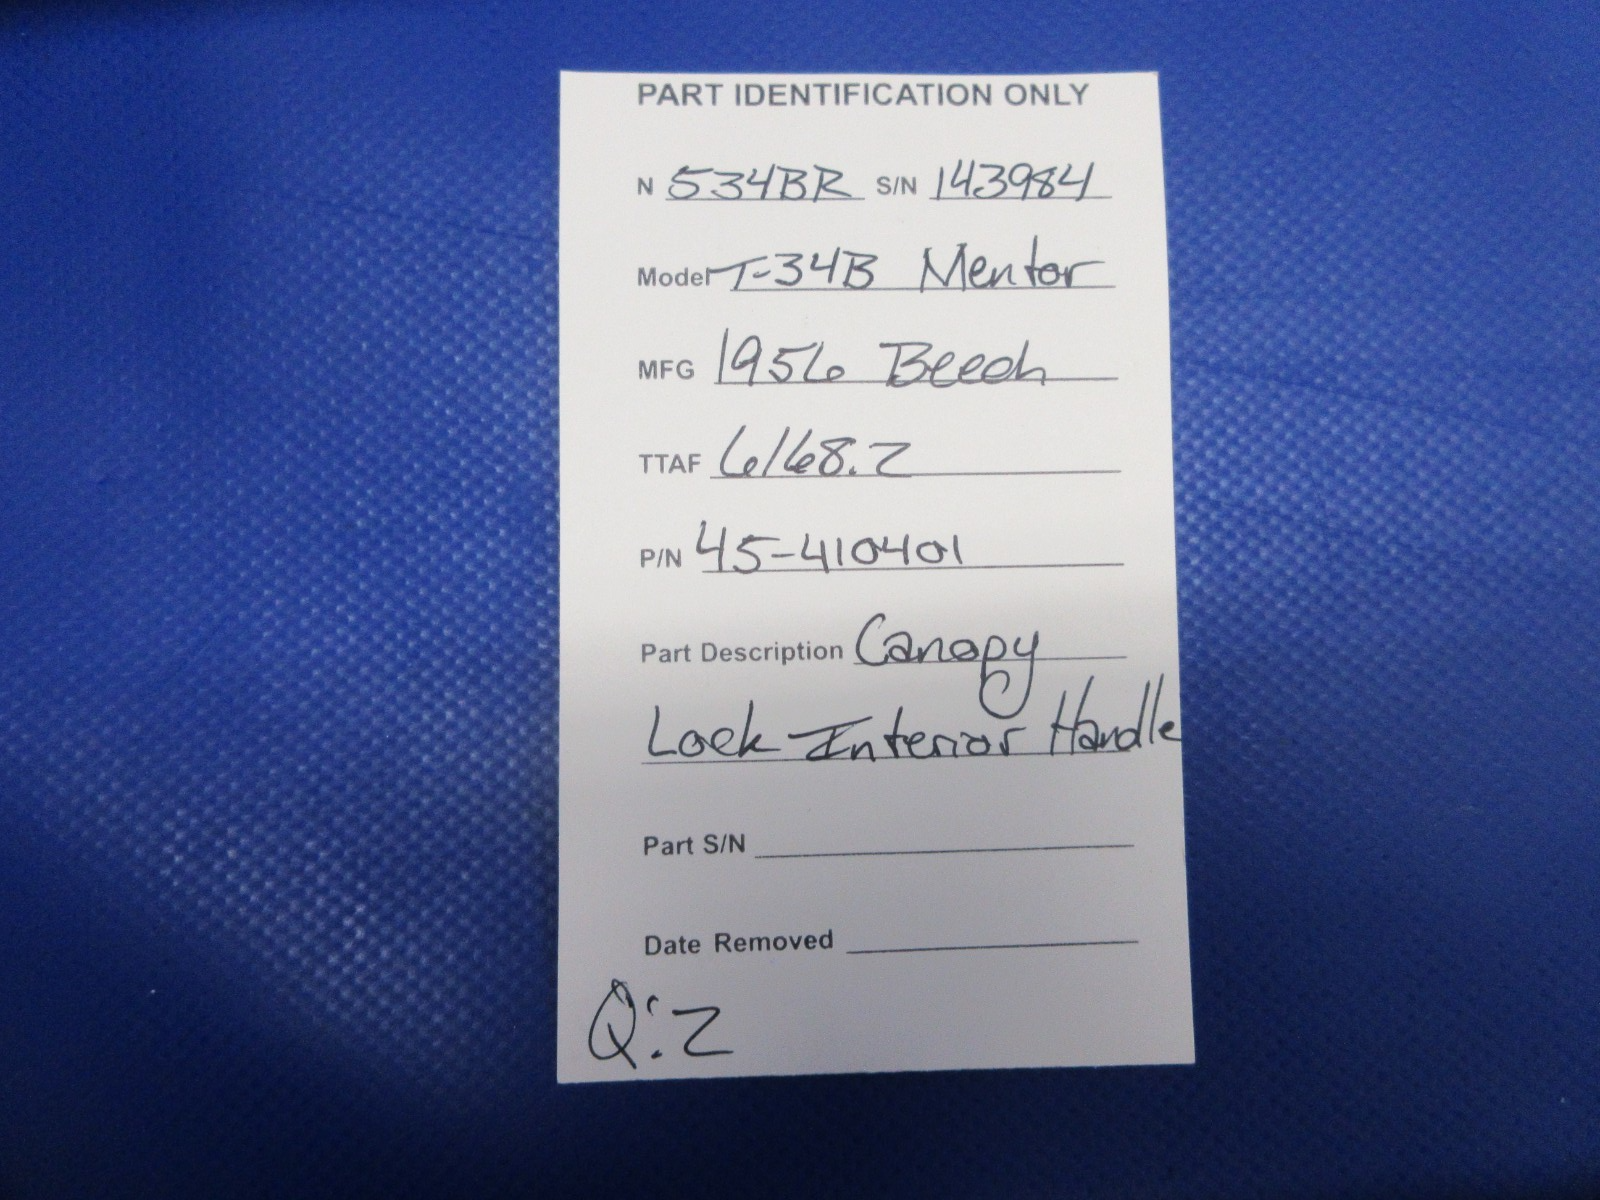 PART IDENTIFICATION ONLY
N 534BR S/N 143984
Model T-34B Mentor
MFG 1956 Beech
TTAF 6168.2
P/N 45-410401
Part Description Canopy
Lock Interior Handle
Part S/N
Date Removed
Q:2